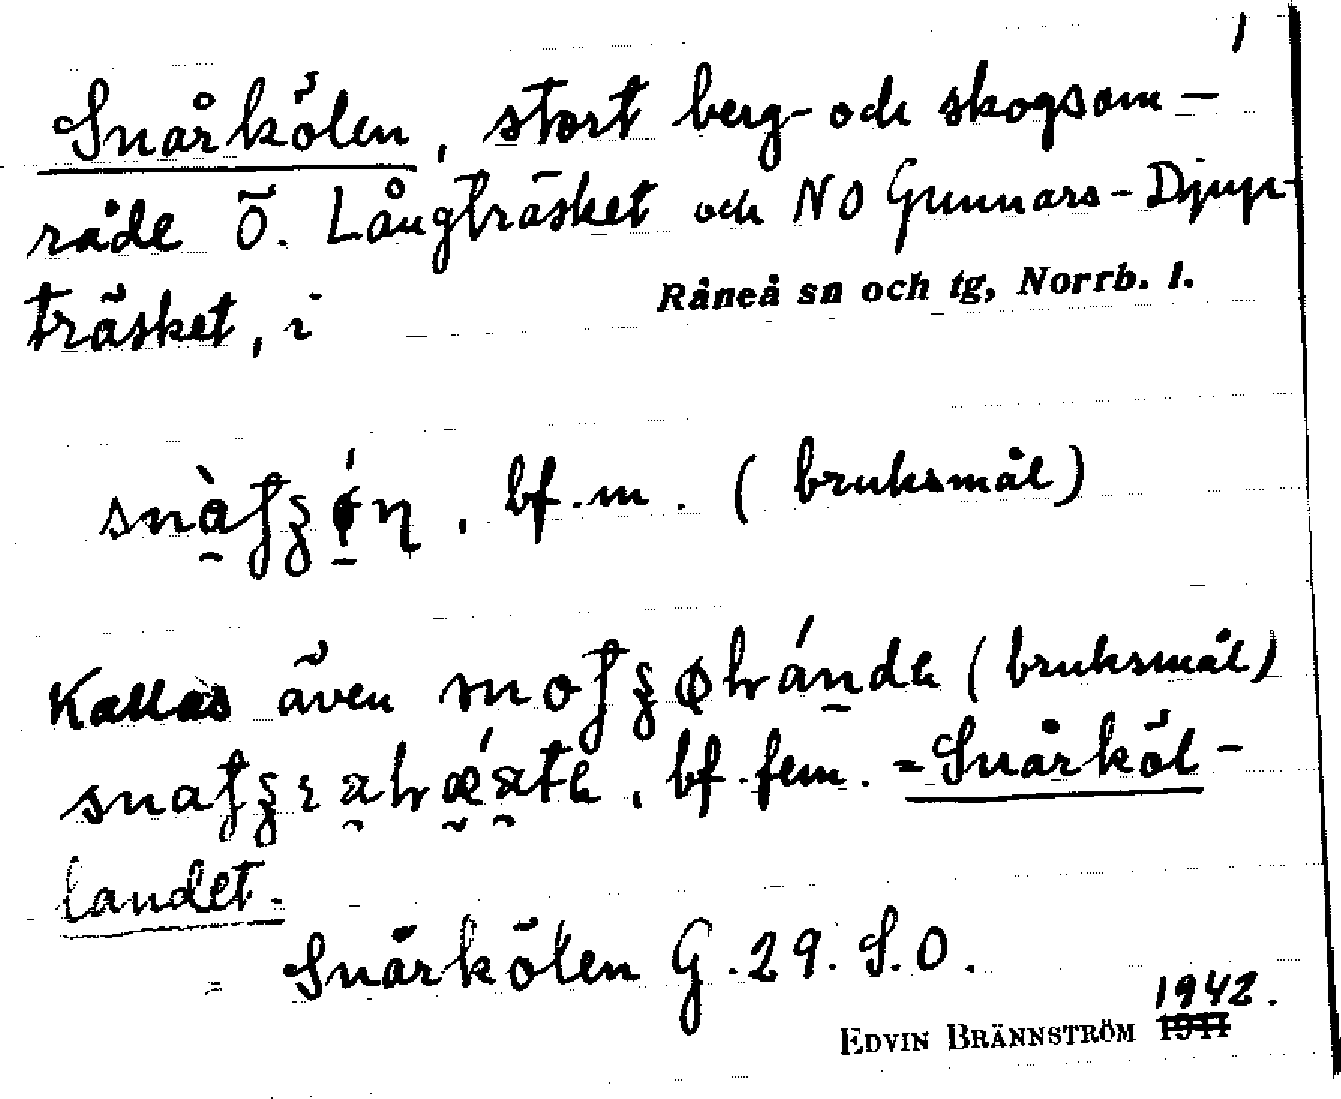 1
Snårkölen, stort berg- och skogsom-
råde Ö. Långträsket och NO Gunnars-Djup-
träsket, i Råneå sn och tg, Norrb. l.
bf. m. (bruksmål)
Kallas även (bruksmål)
bf. fem. = Snårköl-
landet.
= Snårkölen G. 29. S.O.
1942.
EDVIN BRÄNNSTRÖM 1941